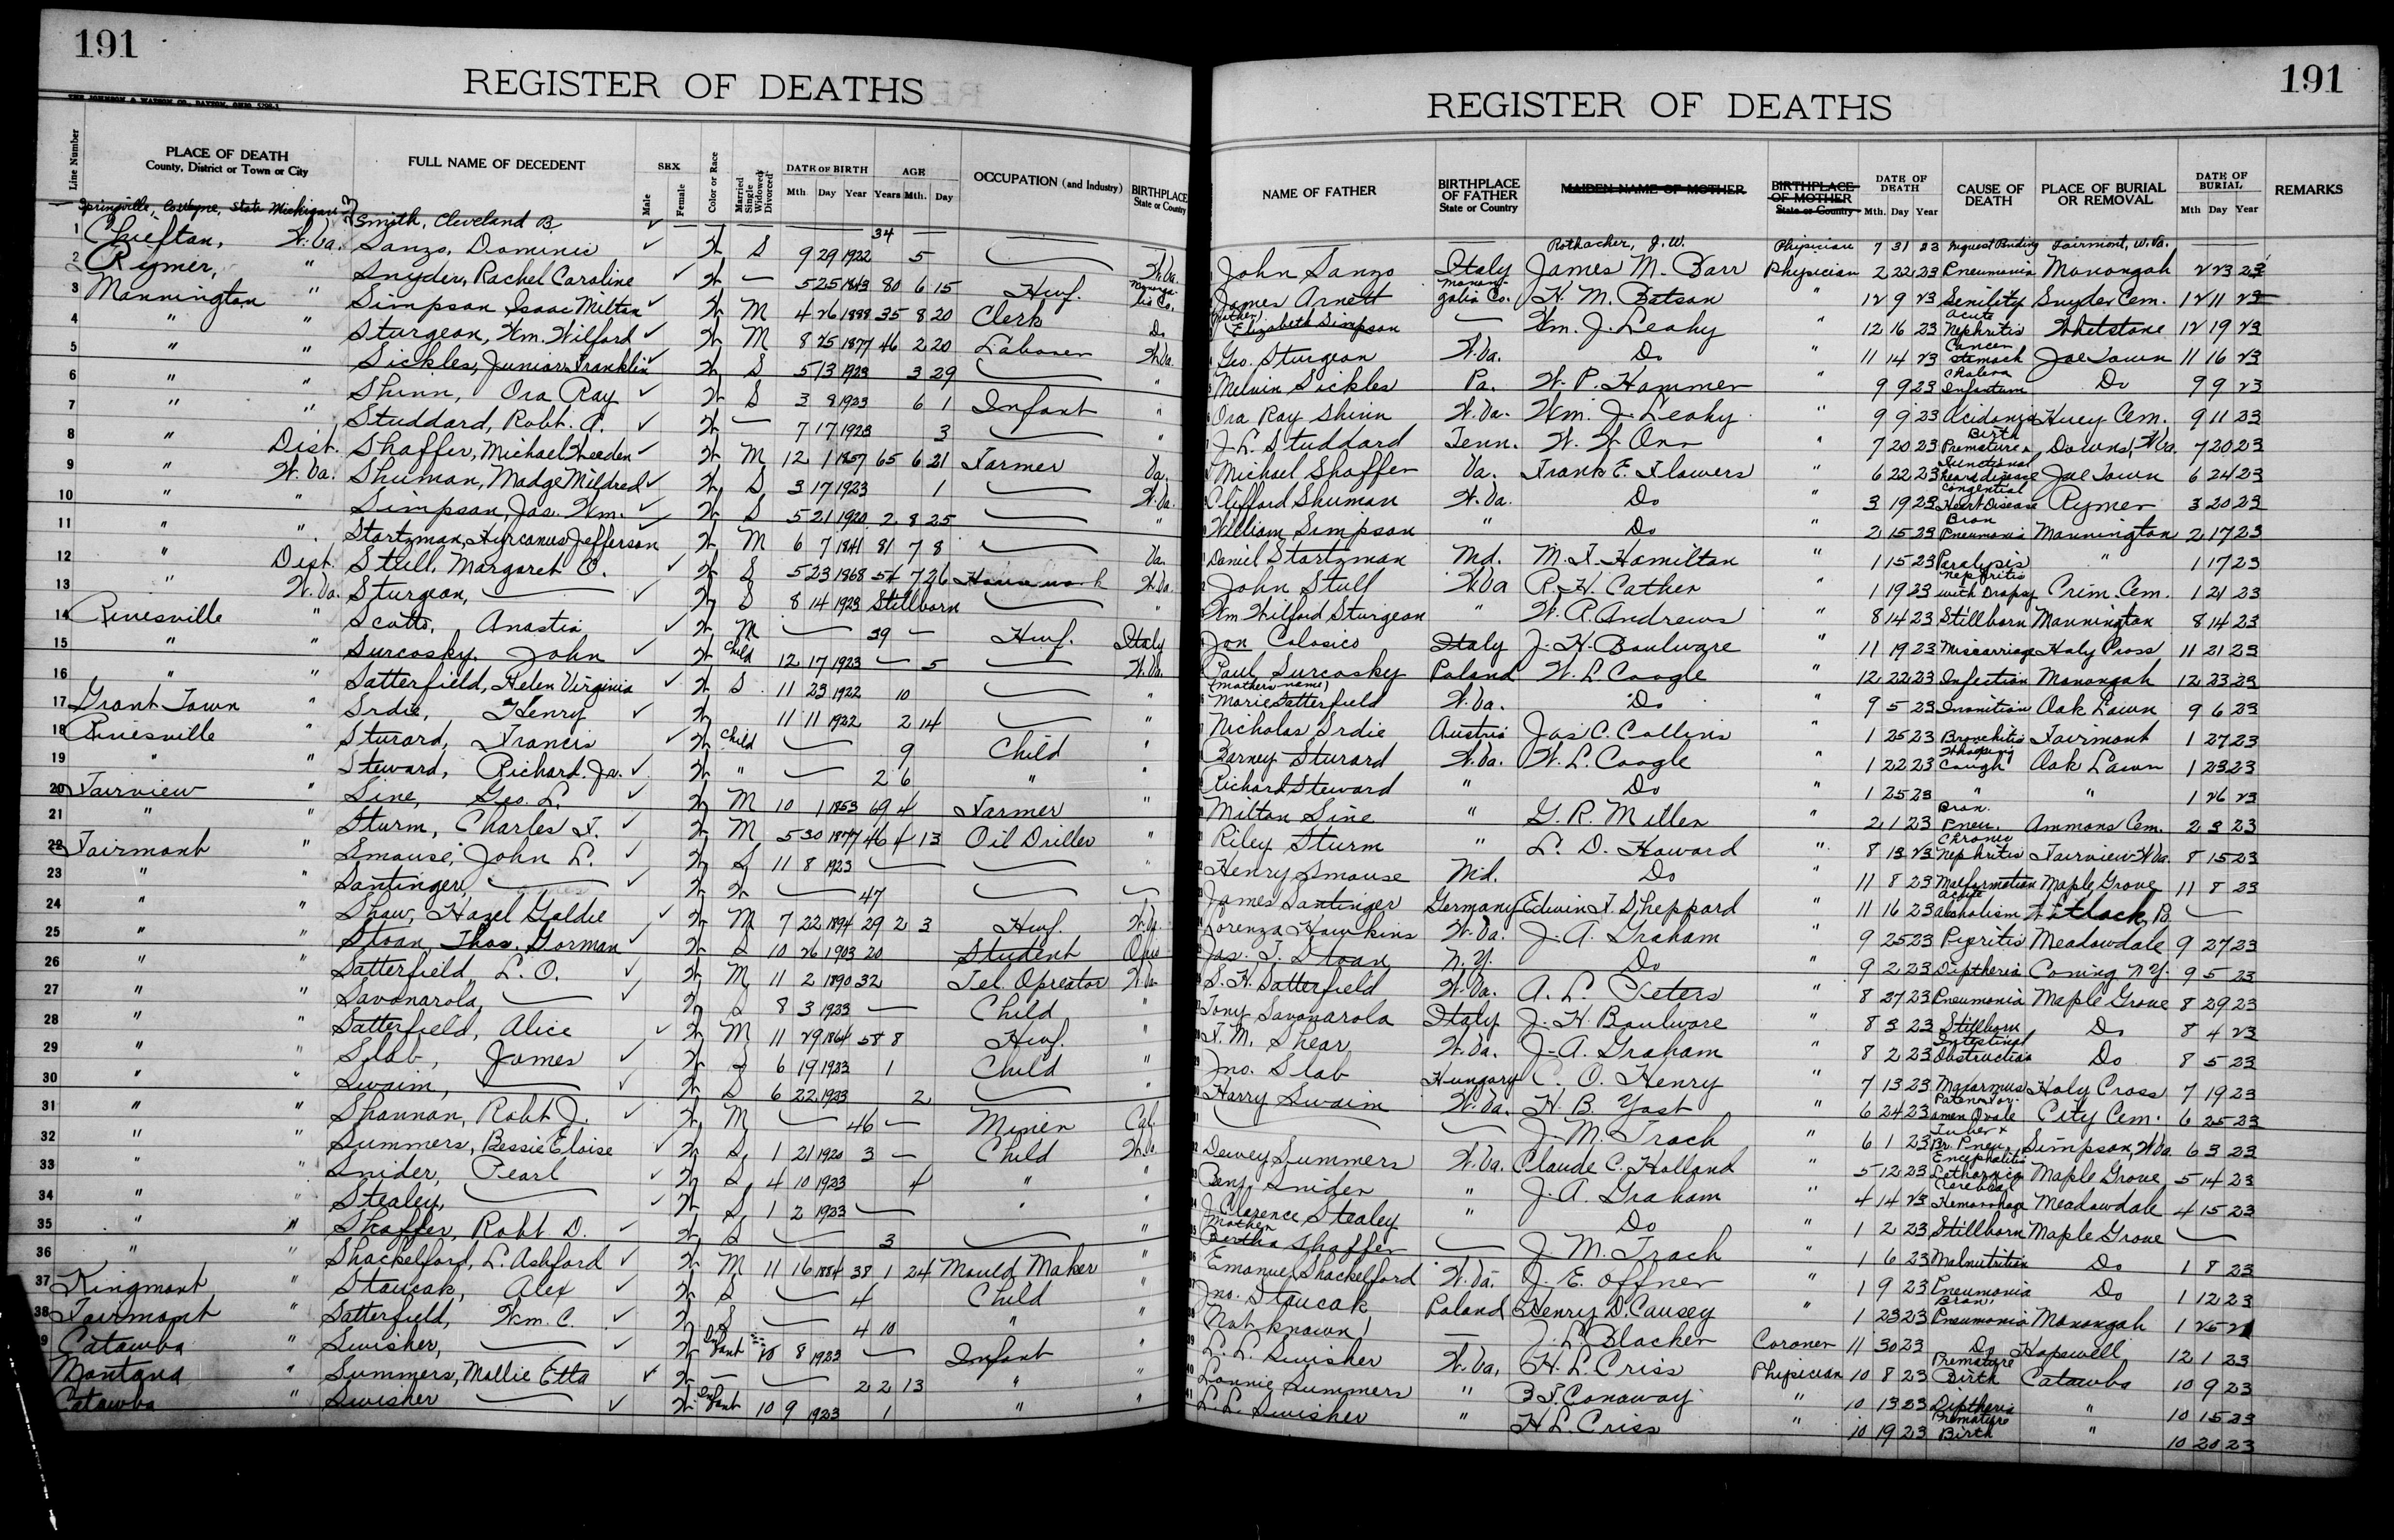 191
REGISTER OF DEATHS
THE JOHNSON & WATSON CO., DAYTON, OHIO
Line Number PLACE OF DEATH County, District or Town or City FULL NAME OF DECEDENT SEX Male Female Color or Race Married Single Widowed Divorced DATE OF BIRTH Mth. Day Year AGE Years Mth. Day OCCUPATION (and Industry) BIRTHPLACE State or Country
Springville, Co Wayne, State Michigan Smith, Cleveland B. ✓ 34
1 Chieftan, W. Va. Sanzo, Dominic ✓ W S 9 29 1922 5 W. Va.
2 Rymer, " Snyder, Rachel Caroline ✓ W — 5 25 1843 80 6 15 Hwf. Mononga-lia Co.
3 Mannington " Simpson Isaac Milton ✓ W M 4 26 1888 35 8 20 Clerk Do
4 " " Sturgeon, Wm. Wilford ✓ W M 8 25 1877 46 2 20 Laborer W. Va.
5 " " Sickles, Junior Franklin ✓ W S 5 13 1923 3 29 "
6 " " Shinn, Ora Ray ✓ W S 3 8 1923 6 1 Infant "
7 " " Studdard, Robt. A. ✓ W — 7 17 1923 3 "
8 " Dist. Shaffer, Michael Weeden ✓ W M 12 1 1857 65 6 21 Farmer Va.
9 " W. Va. Shuman, Madge Mildred ✓ W S 3 17 1923 1 W. Va.
10 " " Simpson, Jas. Wm. ✓ W S 5 21 1920 2 8 25 "
11 " " Startzman, Hyrcanus Jefferson ✓ W M 6 7 1841 81 7 8 Va.
12 " Dist. Stull, Margaret O. ✓ W S 5 23 1868 54 7 26 Housework W. Va.
13 " W. Va. Sturgeon, ✓ W S 8 14 1923 Stillborn
14 Rivesville " Scotto, Anastia ✓ W M 39 — Hwf. Italy
15 " " Surcosky, John ✓ W Child 12 17 1923 — 5 W. Va.
16 " " Satterfield, Helen Virginia ✓ W S 11 23 1922 10 "
17 Grant Town " Srdie, Henry ✓ W 11 11 1922 2 14 "
18 Rivesville " Sturard, Francis ✓ W Child 9 Child "
19 " " Steward, Richard Jr. ✓ W " 2 6 " "
20 Fairview " Sine, Geo. L. ✓ W M 10 1 1853 69 4 Farmer "
21 " " Sturm, Charles F. ✓ W M 5 30 1877 46 4 13 Oil Driller "
22 Fairmont " Smouse, John L. ✓ W S 11 8 1923 — "
23 " " Santinger, ✓ W W 47
24 " " Shaw, Hazel Goldie ✓ W M 7 22 1894 29 2 3 Hwf. W. Va.
25 " " Sloan, Thos. Gorman ✓ W S 10 26 1903 20 Student Ohio
26 " " Satterfield, L. O. ✓ W M 11 2 1890 32 Tel. Opreator W. Va.
27 " " Savonarola, ✓ W S 8 3 1923 — Child "
28 " " Satterfield, Alice ✓ W M 11 29 1864 58 8 Hwf. "
29 " " Slab, James ✓ W S 6 19 1923 1 Child "
30 " " Swaim, ✓ W S 6 22 1923 2 "
31 " " Shannon, Robt J. ✓ W M 46 — Minier Cal.
32 " " Summers, Bessie Eloise ✓ W S 1 21 1920 3 — Child W. Va.
33 " " Snider, Pearl ✓ W S 4 10 1923 4 " "
34 " " Stealey, ✓ W S 1 2 1923 — " "
35 " " Shaffer, Robt D. ✓ W S 3 "
36 " " Shackelford, L. Ashford ✓ W M 11 16 1884 38 1 24 Mould Maker "
37 Kingmont " Staucak, Alex ✓ W S 4 Child "
38 Fairmont " Satterfield, Wm. C. ✓ W S 4 10 " "
39 Catawba " Swisher, ✓ W Infant 10 8 1923 — Infant "
Montana " Summers, Mollie Etta ✓ W — 2 2 13 " "
Catawba " Swisher ✓ W. Infant 10 9 1923 1 " "
191
REGISTER OF DEATHS
NAME OF FATHER BIRTHPLACE OF FATHER State or Country MAIDEN NAME OF MOTHER BIRTHPLACE OF MOTHER State or Country DATE OF DEATH Mth. Day Year CAUSE OF DEATH PLACE OF BURIAL OR REMOVAL DATE OF BURIAL Mth Day Year REMARKS
Rothacher, J. W. Physician 7 31 23 Inquest Pending Fairmont, W. Va.
John Sanzo Italy James M. Barr Physician 2 22 23 Pneumonia Monongah 2 23 23
James Arnett Monongalia Co. H. M. Batson " 12 9 23 Senility Snyder Cem. 12 11 23
(Mother) Elizabeth Simpson — Wm. J. Leahy " 12 16 23 Acute Nephritis Whetstone 12 19 23
Geo. Sturgeon W. Va. Do " 11 14 23 Cancer stomach Joe Town 11 16 23
Melvin Sickles Pa. W. P. Hammer " 9 9 23 Cholera Infantum Do 9 9 23
Ora Ray Shinn W. Va. Wm. J. Leahy " 9 9 23 Acidonia Huey Cem. 9 11 23
J. L. Studdard Tenn. W. W. Orr " 7 20 23 Birth Premature Downs, W. Va. 7 20 23
Michael Shaffer Va. Frank E. Flowers " 6 22 23 Functional heart disease Joe Town 6 24 23
Clifford Shuman W. Va. Do " 3 19 23 Congential Heart Disease Rymer 3 20 23
William Simpson " Do " 2 15 23 Bron Pneumonia Mannington 2 17 23
Daniel Startzman Md. M. F. Hamilton " 1 15 23 Paralysis " 1 17 23
John Stull W Va R. H. Cather " 1 19 23 nephritis with Dropsy Crim. Cem. 1 21 23
Wm Wilford Sturgeon " W. A. Andrews " 8 14 23 Stillborn Mannington 8 14 23
Jon Colosico Italy J. H. Boulware " 11 19 23 Miscarriage Holy Cross 11 21 23
Paul Surcosky Poland W. L. Coogle " 12 22 23 Infection Monongah 12 23 23
(Mothers name) Marie Satterfield W. Va. Do " 9 5 23 Inanition Oak Lawn 9 6 23
Nicholas Srdie Austria Jas C. Collins " 1 25 23 Bronchitis Fairmont 1 27 23
Barney Sturard W. Va. W. L. Coogle " 1 22 23 Whooping Cough Oak Lawn 1 23 23
Richard Steward " Do " 1 25 23 " " 1 26 23
Milton Sine " G. R. Miller " 2 1 23 Bron. Pneu. Ammons Cem. 2 3 23
Riley Sturm " L. D. Howard " 8 13 23 Chronic Nephritis Fairview W Va. 8 15 23
Henry Smouse Md. Do " 11 8 23 Malformation Maple Grove 11 8 23
James Santinger Germany Edwin F. Sheppard " 11 16 23 Acute alcoholism
Lorenza Hawkins W. Va. J. A. Graham " 9 25 23 Pyeritis Meadowdale 9 27 23
Jas. T. Sloan N. Y. Do " 9 2 23 Diptheria Coning N Y. 9 5 23
S. H. Satterfield W. Va. A. L. Peters " 8 27 23 Pneumonia Maple Grove 8 29 23
Tony Savonarola Italy J. H. Boulware " 8 3 23 Stillborn Do 8 4 23
F. M. Shear W. Va. J. A. Graham " 8 2 23 Intestinal Obstruction Do 8 5 23
Jno. Slab Hungary C. O. Henry " 7 13 23 Marasmus Holy Cross 7 19 23
Harry Swaim W. Va. H. B. Yost " 6 24 23 Paten For-amen Ovale City Cem. 6 25 23
J. M. Trach " 6 1 23 Tuber & Br. Pneu. Simpson, W Va 6 3 23
Dewey Summers W. Va. Claude C. Holland " 5 12 23 Encephalitis Lethargica Maple Grove 5 14 23
Benj. Snider " J. A. Graham " 4 14 23 Cerebral Hemorrhage Meadowdale 4 15 23
J. Clarence Stealey " Do " 1 2 23 Stillborn Maple Grove
Mother Bertha Shaffer — J. M. Trach " 1 6 23 Malnutrition Do 1 8 23
Emanuel Shackelford W. Va. J. E. Offner " 1 9 23 Pneumonia Do 1 12 23
Jno. Staucak Poland Henry D. Causey " 1 23 23 Bron. Pneumonia Monongah 1 25 2
Not known — J. L. Blocher Coroner 11 30 23 Do Hopewell 12 1 23
L. L. Swisher W. Va. H. L. Criss Physician 10 8 23 Premature Birth Catawba 10 9 23
Lonnie Summers " B. F. Conaway " 10 13 23 Diptheria " 10 15 23
L. L. Swisher " H L. Criss " 10 19 23 Premature Birth " 10 20 23